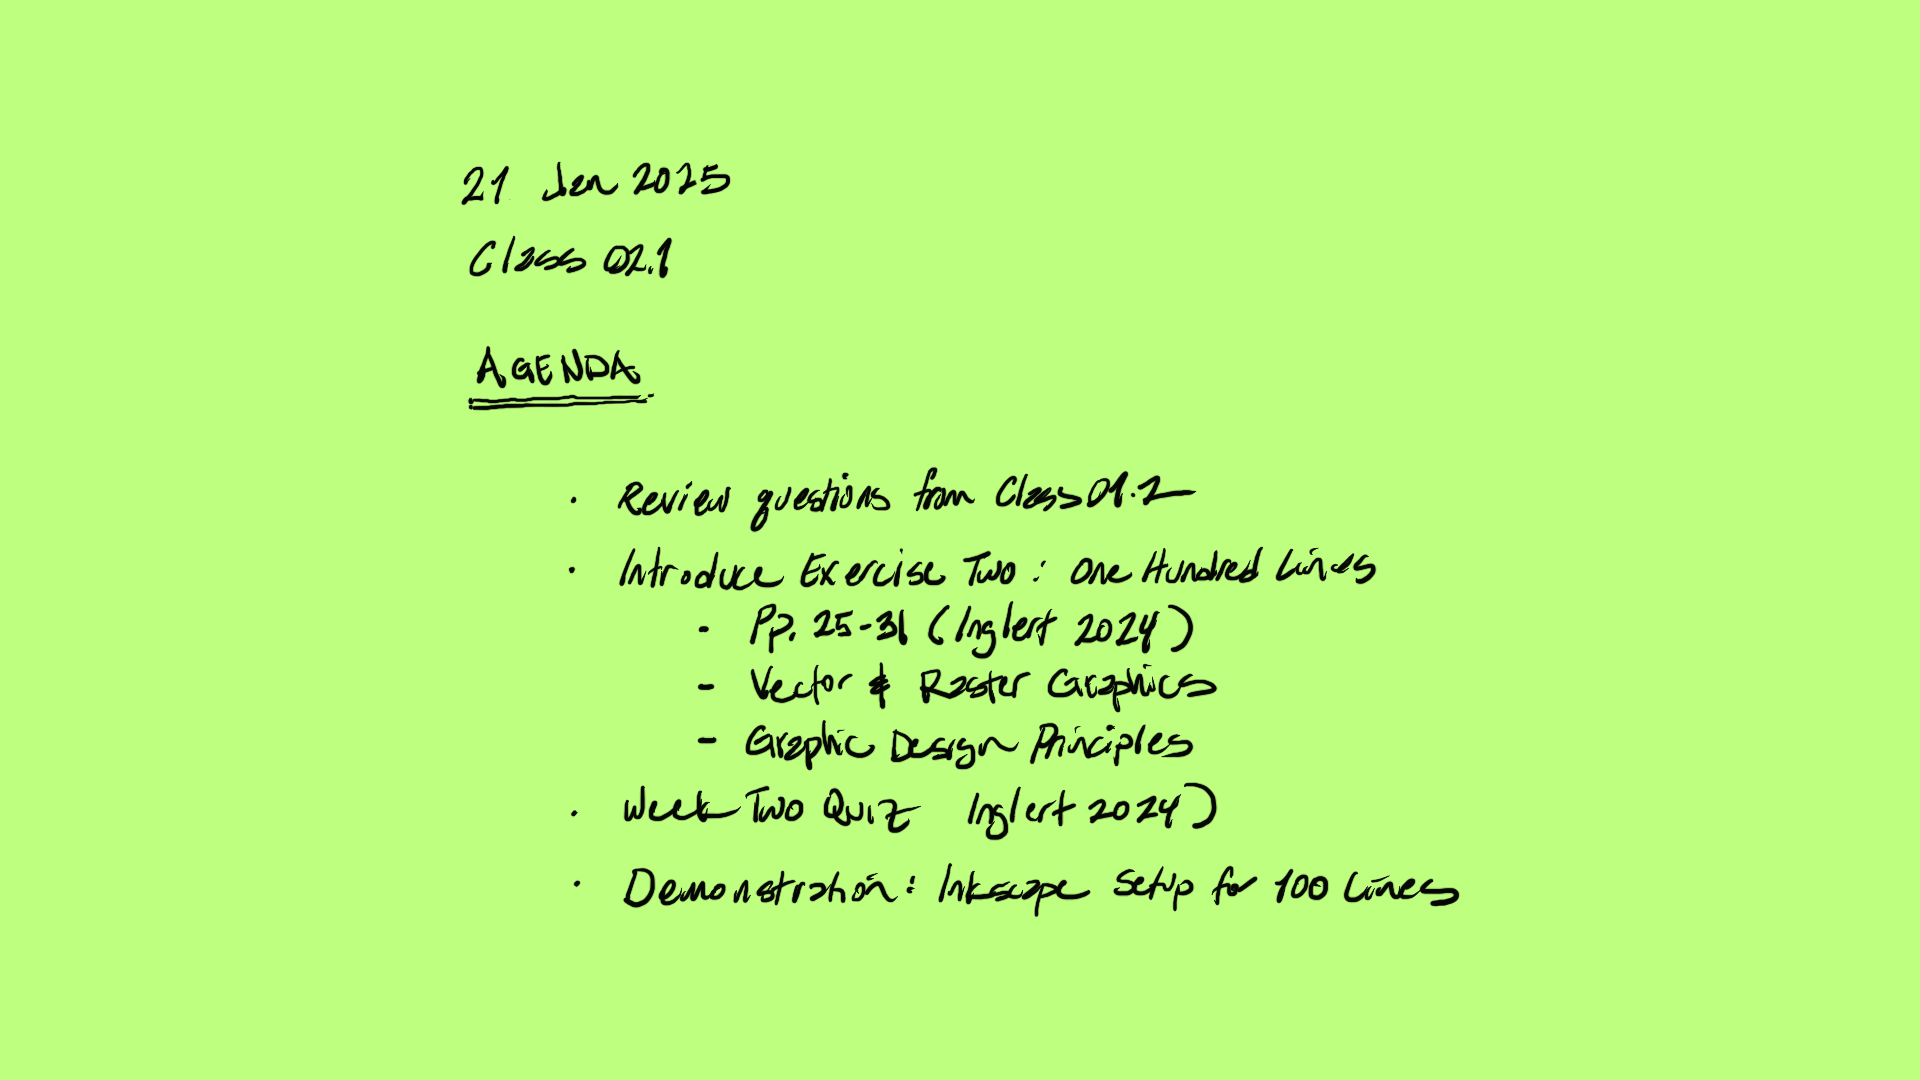 21 Jan 2025
Class 02.1
AGENDA
· Review questions from Class 01.2
· Introduce Exercise Two: One Hundred Lines
- Pp. 25-31 (Inglert 2024)
- Vector & Raster Graphics
- Graphic Design Principles
· Week Two Quiz Inglert 2024)
· Demonstration: Inkscape Setup for 100 Lines